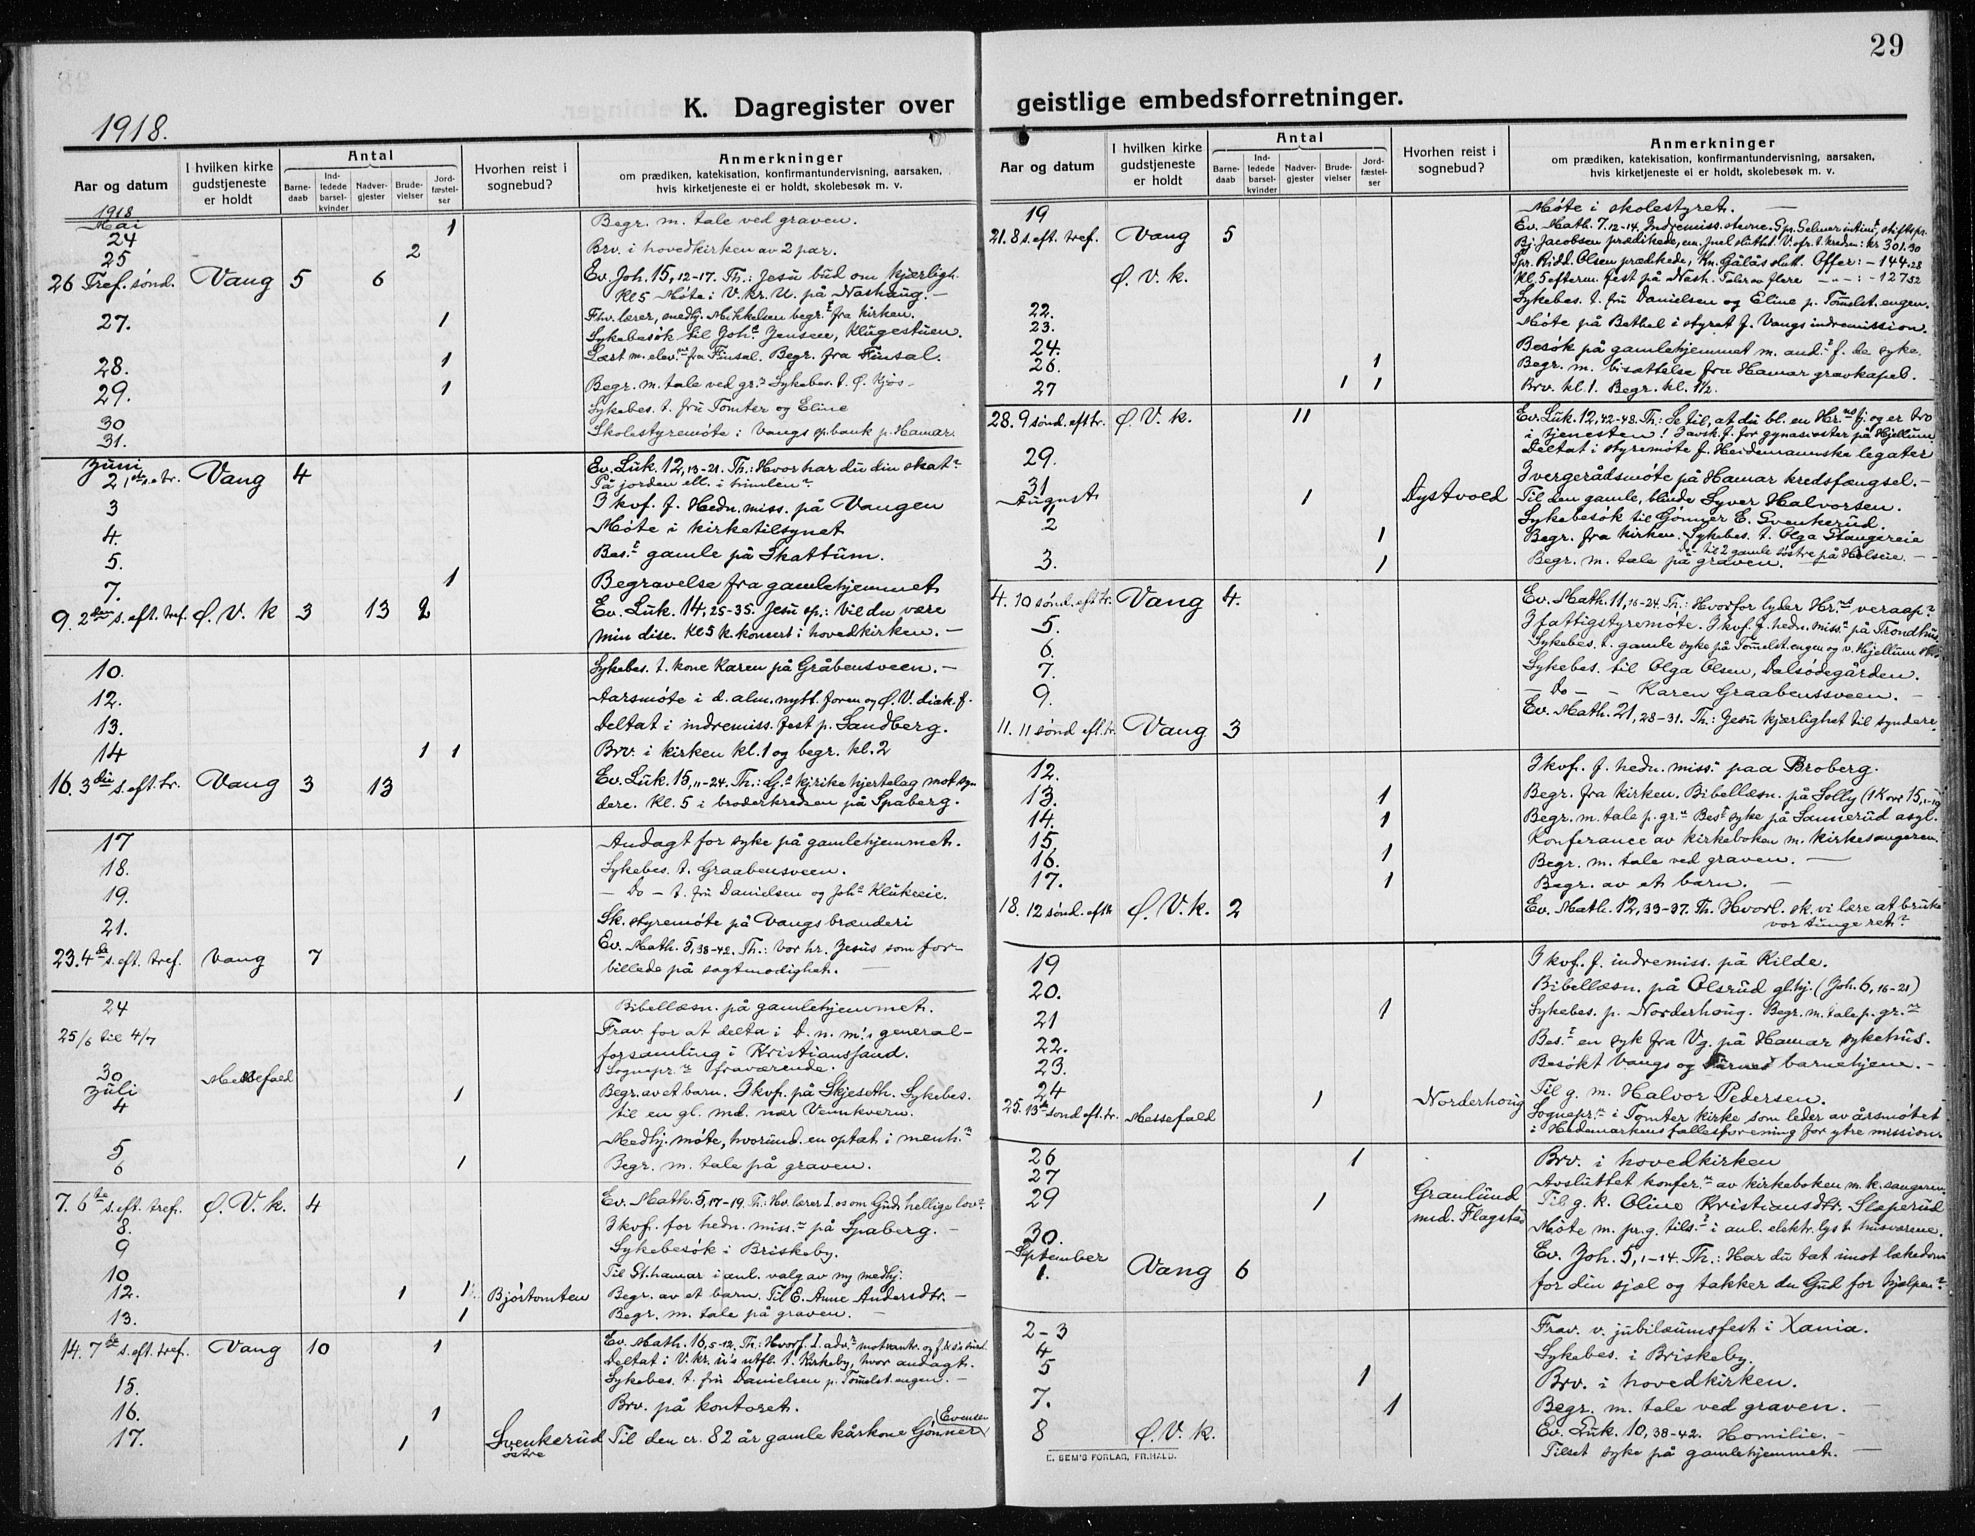 29
K. Dagregister over geistlige embedsforretninger.
1918.
Aar og datum
I hvilken kirke gudstjeneste er holdt
Antal
Barnedaab
Indledede barselkvinder
Nadvergjester
Brudevielser
Jordfæstelser
Hvorhen reist i sognebud?
Anmerkninger
om prædiken, katekisation, konfirmantundervisning, aarsaken, hvis kirketjeneste ei er holdt, skolebesøk m. v.
1918
Mai
24 1 Begr. m. tale ved graven.
25 2 Brv. i hovedkirken av 2 par.
26 Tref. sønd. Vang 5 6 Ev. Joh. 15, 12-17. Th.: Jesu bud om kjærligh.
Kl 5 Møte i V. kr. U. på Nashaug. -
27. 1 Fhv. lærer, medhj. Mikkelsen begr. fra kirken.
Sykebesøk til Joh. Jensen, Klugestuen.
28. 1 Læst m. elev. fra Finsal. Begr. fra Finsal.
29. 1 Begr. m. tale ved gr. Sykebes. t. O. Kjos -
30 Sykebes. t. fru Tomter og Eline
31. Skolestyremøte i Vangs sp.bank p. Hamar.
Juni
2 1ste s. e. tr. Vang 4 Ev. Luk. 12, 13-21. Th.: Hvor har du din skat?
På jorden ell. i himlen?
3 I kvf. f. Hedn. miss. på Vangen
4. Møte i kirketilsynet
5. Bes. gamle på Skattum.
7. 1 Begravelse fra gamlehjemmet
9. 2den s. eft. tref. Ø. V. k 3 13 2 Ev. Luk. 14, 25-35. Jesu sp.: Vil du være
min disc. Kl 5 k. konsert i hovedkirken. -
10. Sykebes. t. kone Karen på Gråbensveen. -
12. Aarsmøte i d. alm. nytt. foren og Ø. V. diak. f.
13. Deltat i indremiss. fest p. Sandberg.
14 1 1 Brv. i kirken kl. 1 og begr. kl. 2
16. 3die s. eft. tr. Vang 3 13 Ev. Luk. 15, 11-24. Th.: G. kjrike hjertelag mot syn
dere. Kl. 5 i broderkredsen på Spaberg.
17 Andagt for syke på gamlehjemmet.
18. Sykebes. t. Graabensveen.
19. - Do - t. fru Danielsen og Joh. Klukeeie.
21. Sk. styremøte på Vangs brænderi
23. 4de s. eft. tref. Vang 7 Ev. Math. 5, 38-42. Th.: Vor hr. Jesus som for-
billede på sagtmodighet. -
24 Bibellæsn. på gamlehjemmet.
25/6 til 4/7 Frav. for at delta i D. n. m.'s general-
forsamling i Kristianssand.
30 Messefald Sognepr. fraværende.
Juli
4 1 Begr. av et barn. I kvf. på Skjeseth. Sykebes.
til en gl. md. nær Vennkvern.
5 Medhj. møte, hvorund. en optat i menh.
6 1 Begr. m. tale på graven.
7. 6te s. eft. tref. Ø. V. k. 4 Ev. Math. 5, 17-19. Th: Hv. lærer I os om Guds hellige lov?
8. I kvf. for hedn. miss. på Spaberg. -
9 Sykebesøk i Briskeby.
10 Til St. hamar i anl. valg av ny medhj.
12. 1 1 Bjørtomten Begr. av et barn. Til E. Anne Andersdtr. -
13. 1 Begr. m. tale på graven. -
14. 7de s. eft. tref. Vang 10 1 Ev. Math. 16, 5-12. Th.: Hvorf. I adv. mot vantr. og
deltat i V. kr. U's utfl. t. Kirkeby, hvor andagt.
15. Sykebes. t. fru Danielsen p. Tomelst.engen. -
16. 1 Brv. på kontoret.
17. 1 Svenkerud østre Til den cr. 82 år gamle kårkone Gønner Evensen
Aar og datum
I hvilken kirke gudstjeneste er holdt
Antal
Barnedaab
Indledede barselkvinder
Nadvergjester
Brudevielser
Jordfæstelser
Hvorhen reist i sognebud?
Anmerkninger
om prædiken, katekisation, konfirmantundervisning, aarsaken, hvis kirketjeneste ei er holdt, skolebesøk m. v.
19 Møte i skolestyret. -
21. 8 s. eft. tref. Vang 5 Ev. Math. 7, 12-14. Indremiss. stevne. Spr. Selmer intim., stiftspr.
Bj. Jacobsen prædikede, em. Offer t. kreden: kr 301.30
Ø. V. k. Spr. Ridd. Olsen prædkede, Kn. Gålås slutt. Offer: - 144.28
Kl. 5 efterm. fest på Nash. Taler av flere - - : - 127.52
22. Sykebes. t. fru Danielsen og Eline p. Tomelst.engen.
23. Møte på Bethel i styret f. Vangs indremission.
24. Besøk på gamlehjemmet m. and. f. de syke.
26. 1 Begr. m. bisættelse fra Hamar gravkapel. -
27 1 1 Brv. kl. 1. Begr. kl. 1½.
28. 9 sønd. eft tr. Ø. V. k. 11 Ev. Luk. 12, 42-48. Th: Se til, at du bl. en Hr.ns tj. og er tro
i tjenesten! I avsk. f. for gymnasiaster på Hjellum
29. Deltat i styremøte f. Heidemannske legater
31 I vergerådsmøte på Hamar kredsfængsel. -
August
1 1 Dystvold Til den gamle, blinde Syver Halvorsen.
Sykebesøk til Gønner E. Svenkerud.
2 1 Begr. fra kirken. Sykebes. t. Olga Stangereie
3. 1 Begr. m. tale på graven. til 2 gamle søstre på Holseie. -
4. 10 sønd. eft tr. Vang 4. Ev. Math. 11, 16-24. Th.: Hvorfor lyder Hr.ns veraap?
5. I fattigstyremøte. I kvf. f. hedn. miss. på Trondhus
6. Sykebes. t. gamle syke på Tomelst.engen og v. Hjellum
7. Sykebes. til Olga Olsen, Dalsødegården.
9. - Do - - Karen Graabenssveen. -
11. 11 sønd eft. tr. Vang 3 Ev. Math. 21, 28-31. Th.: Jesu kjærlighet til syndere.
12. I kvf. f. hedn. miss. paa Broberg.
13. 1 Begr. fra kirken. Bibellæsn. på Solly (1 Kor 15, 1-19
14. 1 Begr. m. tale p. gr. Bes. syke på Sannerud asyl.
15. Konferance av kirkeboken m. kirkesangeren.
16. 1 Begr. m. tale ved graven. -
17. 1 Begr. av et barn. -
18. 12 sønd. eft tr Ø. V. k. 2 Ev. Math. 12, 33-37. Th. Hvorl. sk. vi lære at bruke
vor tunge ret?
19 I kvf. f. indremiss. på Kilde.
20. Bibellæsn. på Olsrud gl.hj. (Joh. 6, 16-21)
21 1 Sykebes. p. Norderhoug. Begr. m. tale p. gr.
22. Bes. en syk fra Vg. på Hamar sykehus.
23. Besøkt Vangs og Furnes barnehjem. -
24 1 Norderhoug Til g. m. Halvor Pedersen.
25. 13de sønd eft. tr. Messefald Sognepr. i Tomter kirke som leder av årsmøtet
i Hedemarkens fællesforening for ytre mission.
26 1 Brv. i hovedkirken
27 Avsluttet konfer. av kirkeboken m. k. sangeren.
29 1 Granlund md. Flagstad Til g. k. Oline Kristiansdtr. Slæperud
30. Møte m. pr.g. tils. i anl. elektr. lys t. husværene.
September
1. Vang 6 Ev. Joh. 5, 1-14. Th.: Har du tat imot lækedom
for din sjæl og takker du Gud for hjælpen?
2-3 Frav. v. jubilæumsfest i Xania.
4 Sykebes. i Briskeby.
5 1 Brv. i hovedkirken.
7. 1 Begr. m. tale ved graven. -
8 Ø. V. k. Ev. Luk. 10, 38-42. Homilie. -
Tilset syke på gamlehjemmet. -
E. SEM'S FORLAG, FR.HALD.